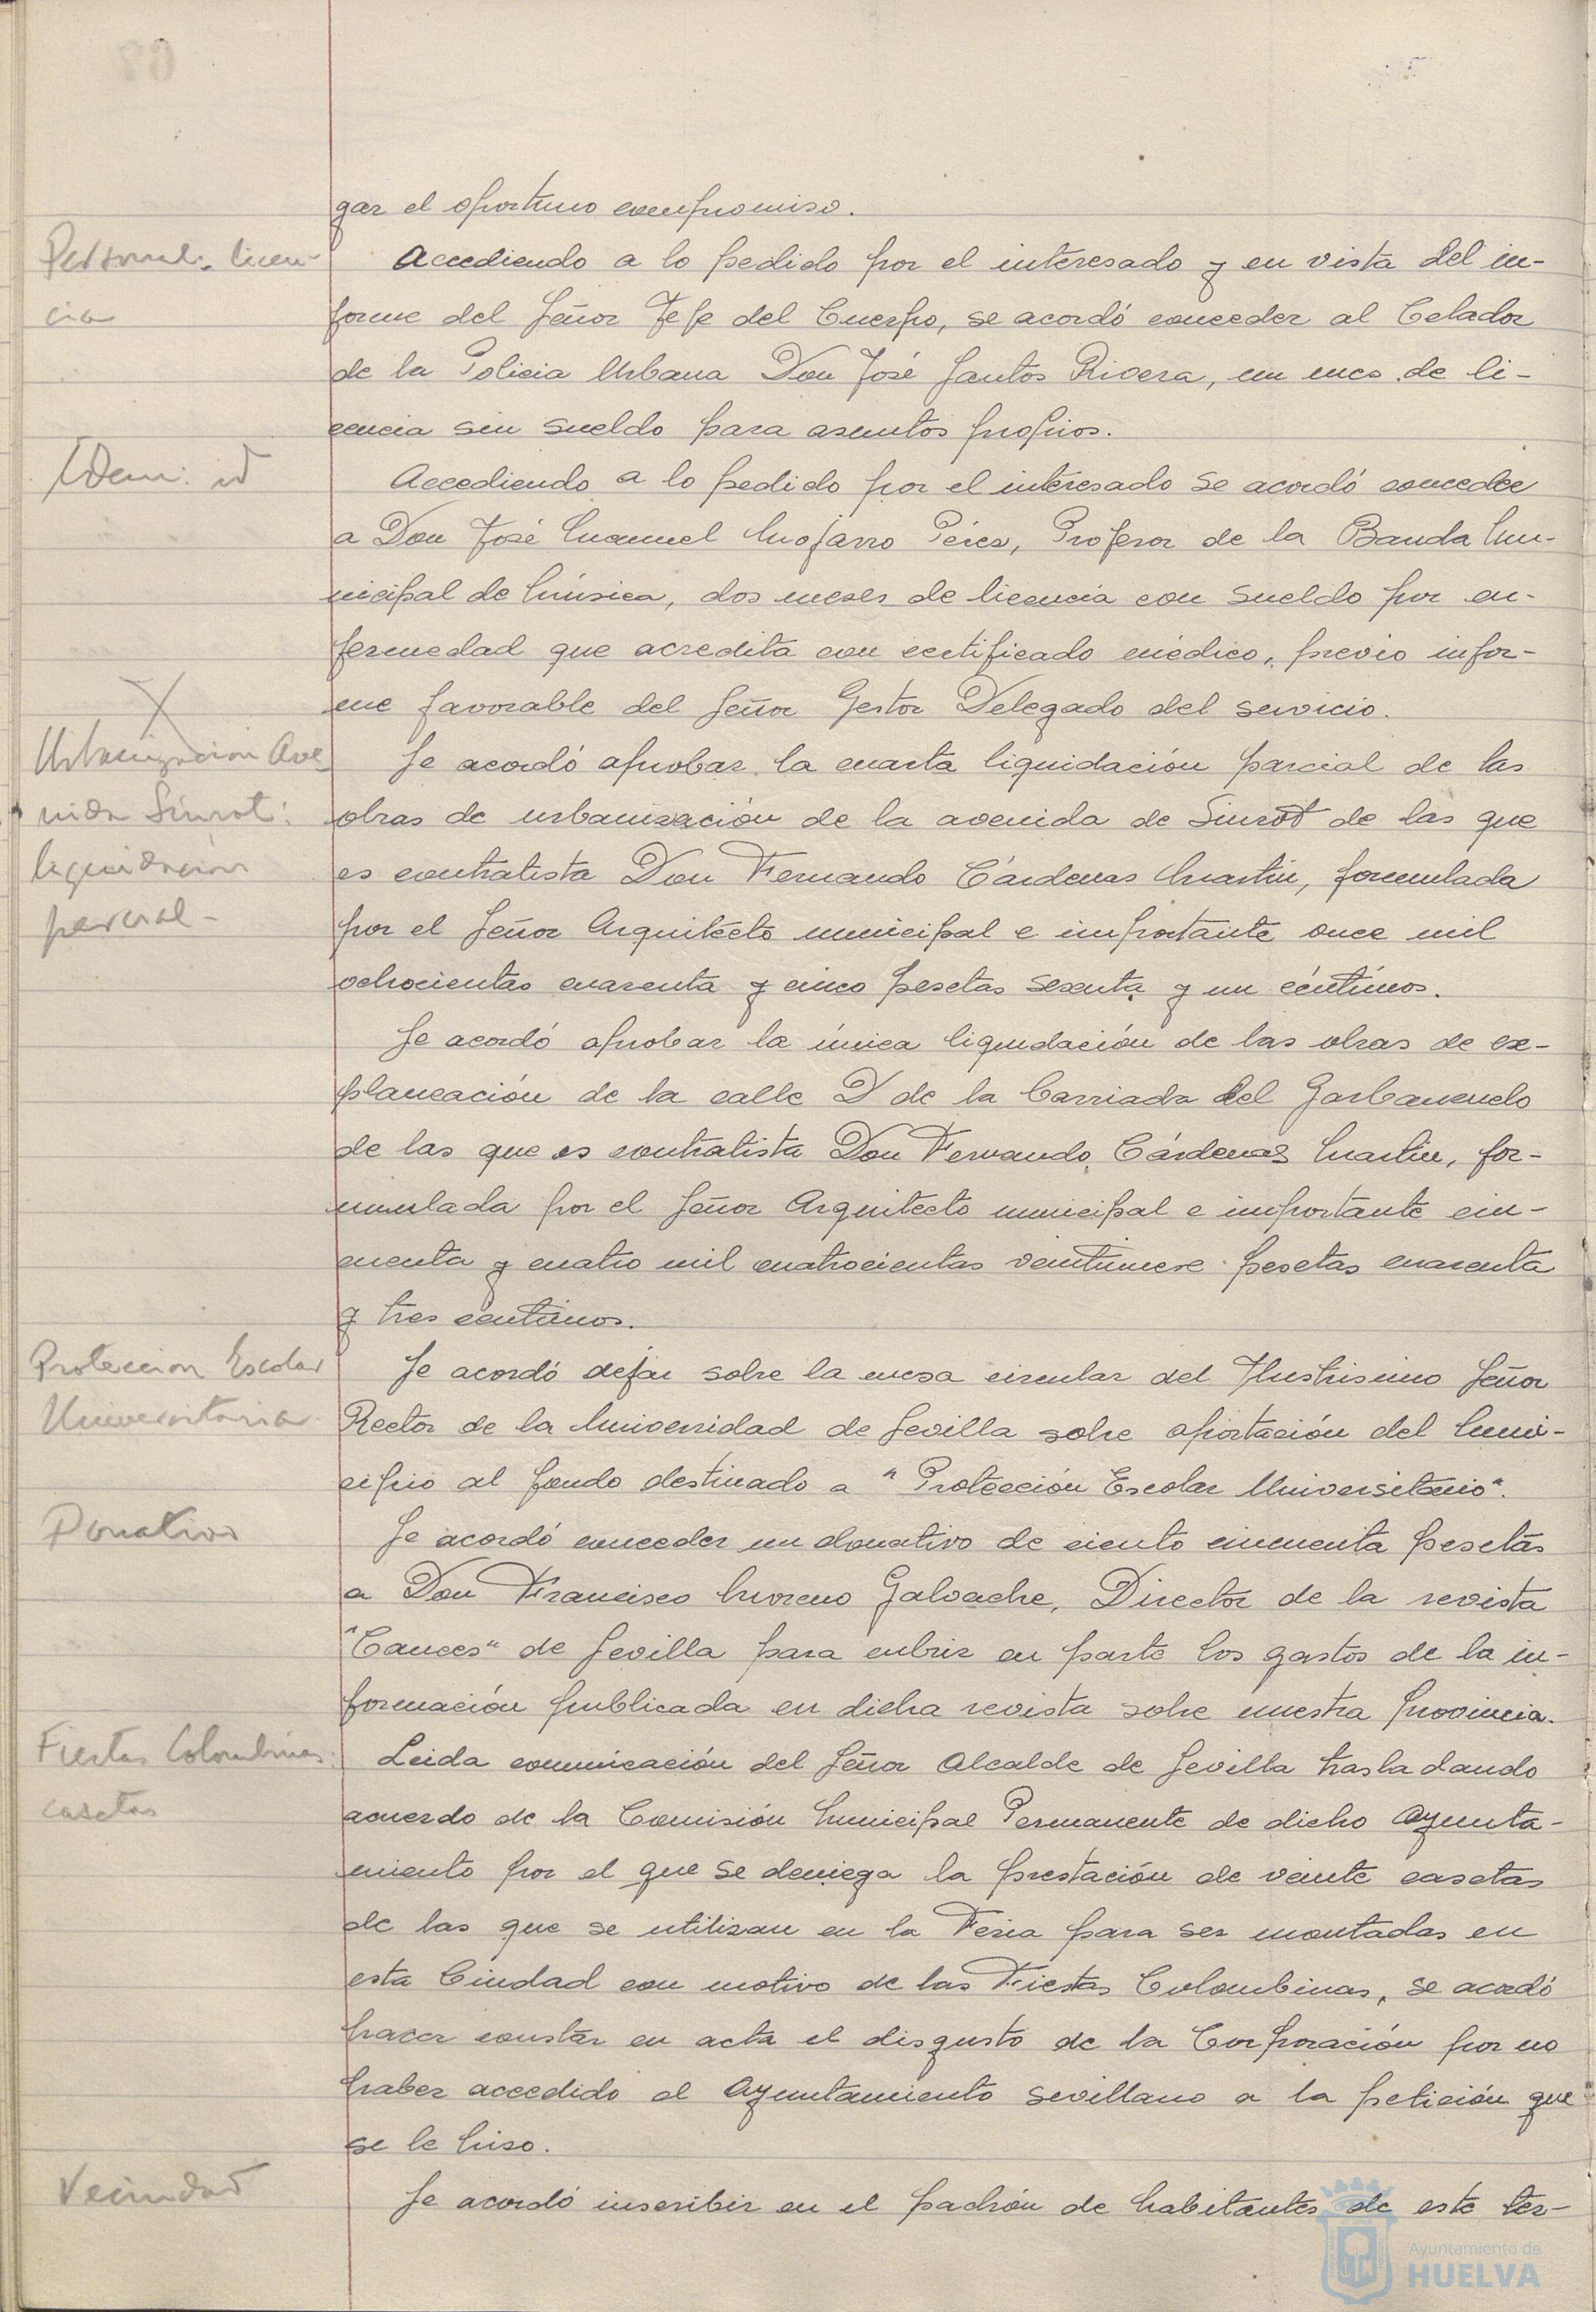 gar el oportuno compromiso.
Personal. licen-
cia
Accediendo a lo pedido por el interesado y en vista del in-
forme del Señor Jefe del Cuerpo, se acordó conceder al Celador
de la Policia Urbana Don José Santos Rivera, un mes de li-
cencia sin sueldo para asuntos propios.
Idem. id
Accediendo a lo pedido por el interesado se acordó conceder
a Don José Manuel Mojarro Pérez, Profesor de la Banda Mu-
nicipal de Música, dos meses de licencia con sueldo por en-
fermedad que acredita con certificado médico, previo infor-
me favorable del Señor Gestor Delegado del servicio.
Urbanizacion Ave-
nida Siurot:
liquidacion
parcial-
Se acordó aprobar la cuarta liquidación parcial de las
obras de urbanización de la avenida de Siurot de las que
es contratista Don Fernando Cárdenas Martin, formulada
por el Señor Arquitecto municipal e importante once mil
ochocientas cuarenta y cinco pesetas sesenta y un céntimos.
Se acordó aprobar la única liquidación de las obras de ex-
planeación de la calle D de la barriada del Garbanzuelo
de las que es contratista Don Fernando Cárdenas Martin, for-
mulada por el Señor Arquitecto municipal e importante cin-
cuenta y cuatro mil cuatrocientas veintinueve pesetas cuarenta
y tres céntimos.
Proteccion Escolar
Universitaria
Se acordó dejar sobre la mesa circular del Ilustrisimo Señor
Rector de la Universidad de Sevilla sobre aportación del Muni-
cipio al fondo destinado a "Protección Escolar Universitario".
Donativo
Se acordó conceder un donativo de ciento cincuenta pesetas
a Don Francisco Moreno Galvache, Director de la revista
"Cauces" de Sevilla para cubrir en parte los gastos de la in-
formación publicada en dicha revista sobre nuestra provincia.
Fiestas Colombinas:
casetas
Leida comunicación del Señor Alcalde de Sevilla trasladando
acuerdo de la Comisión Municipal Permanente de dicho Ayunta-
miento por el que se deniega la prestación de veinte casetas
de las que se utilizan en la Feria para ser montadas en
esta Ciudad con motivo de las Fiestas Colombinas, se acordó
hacer constar en acta el disgusto de la Corporación por no
haber accedido el Ayuntamiento sevillano a la petición que
se le hizo.
Vecindad
Se acordó inscribir en el padrón de habitantes de este ter-
Ayuntamiento de
HUELVA